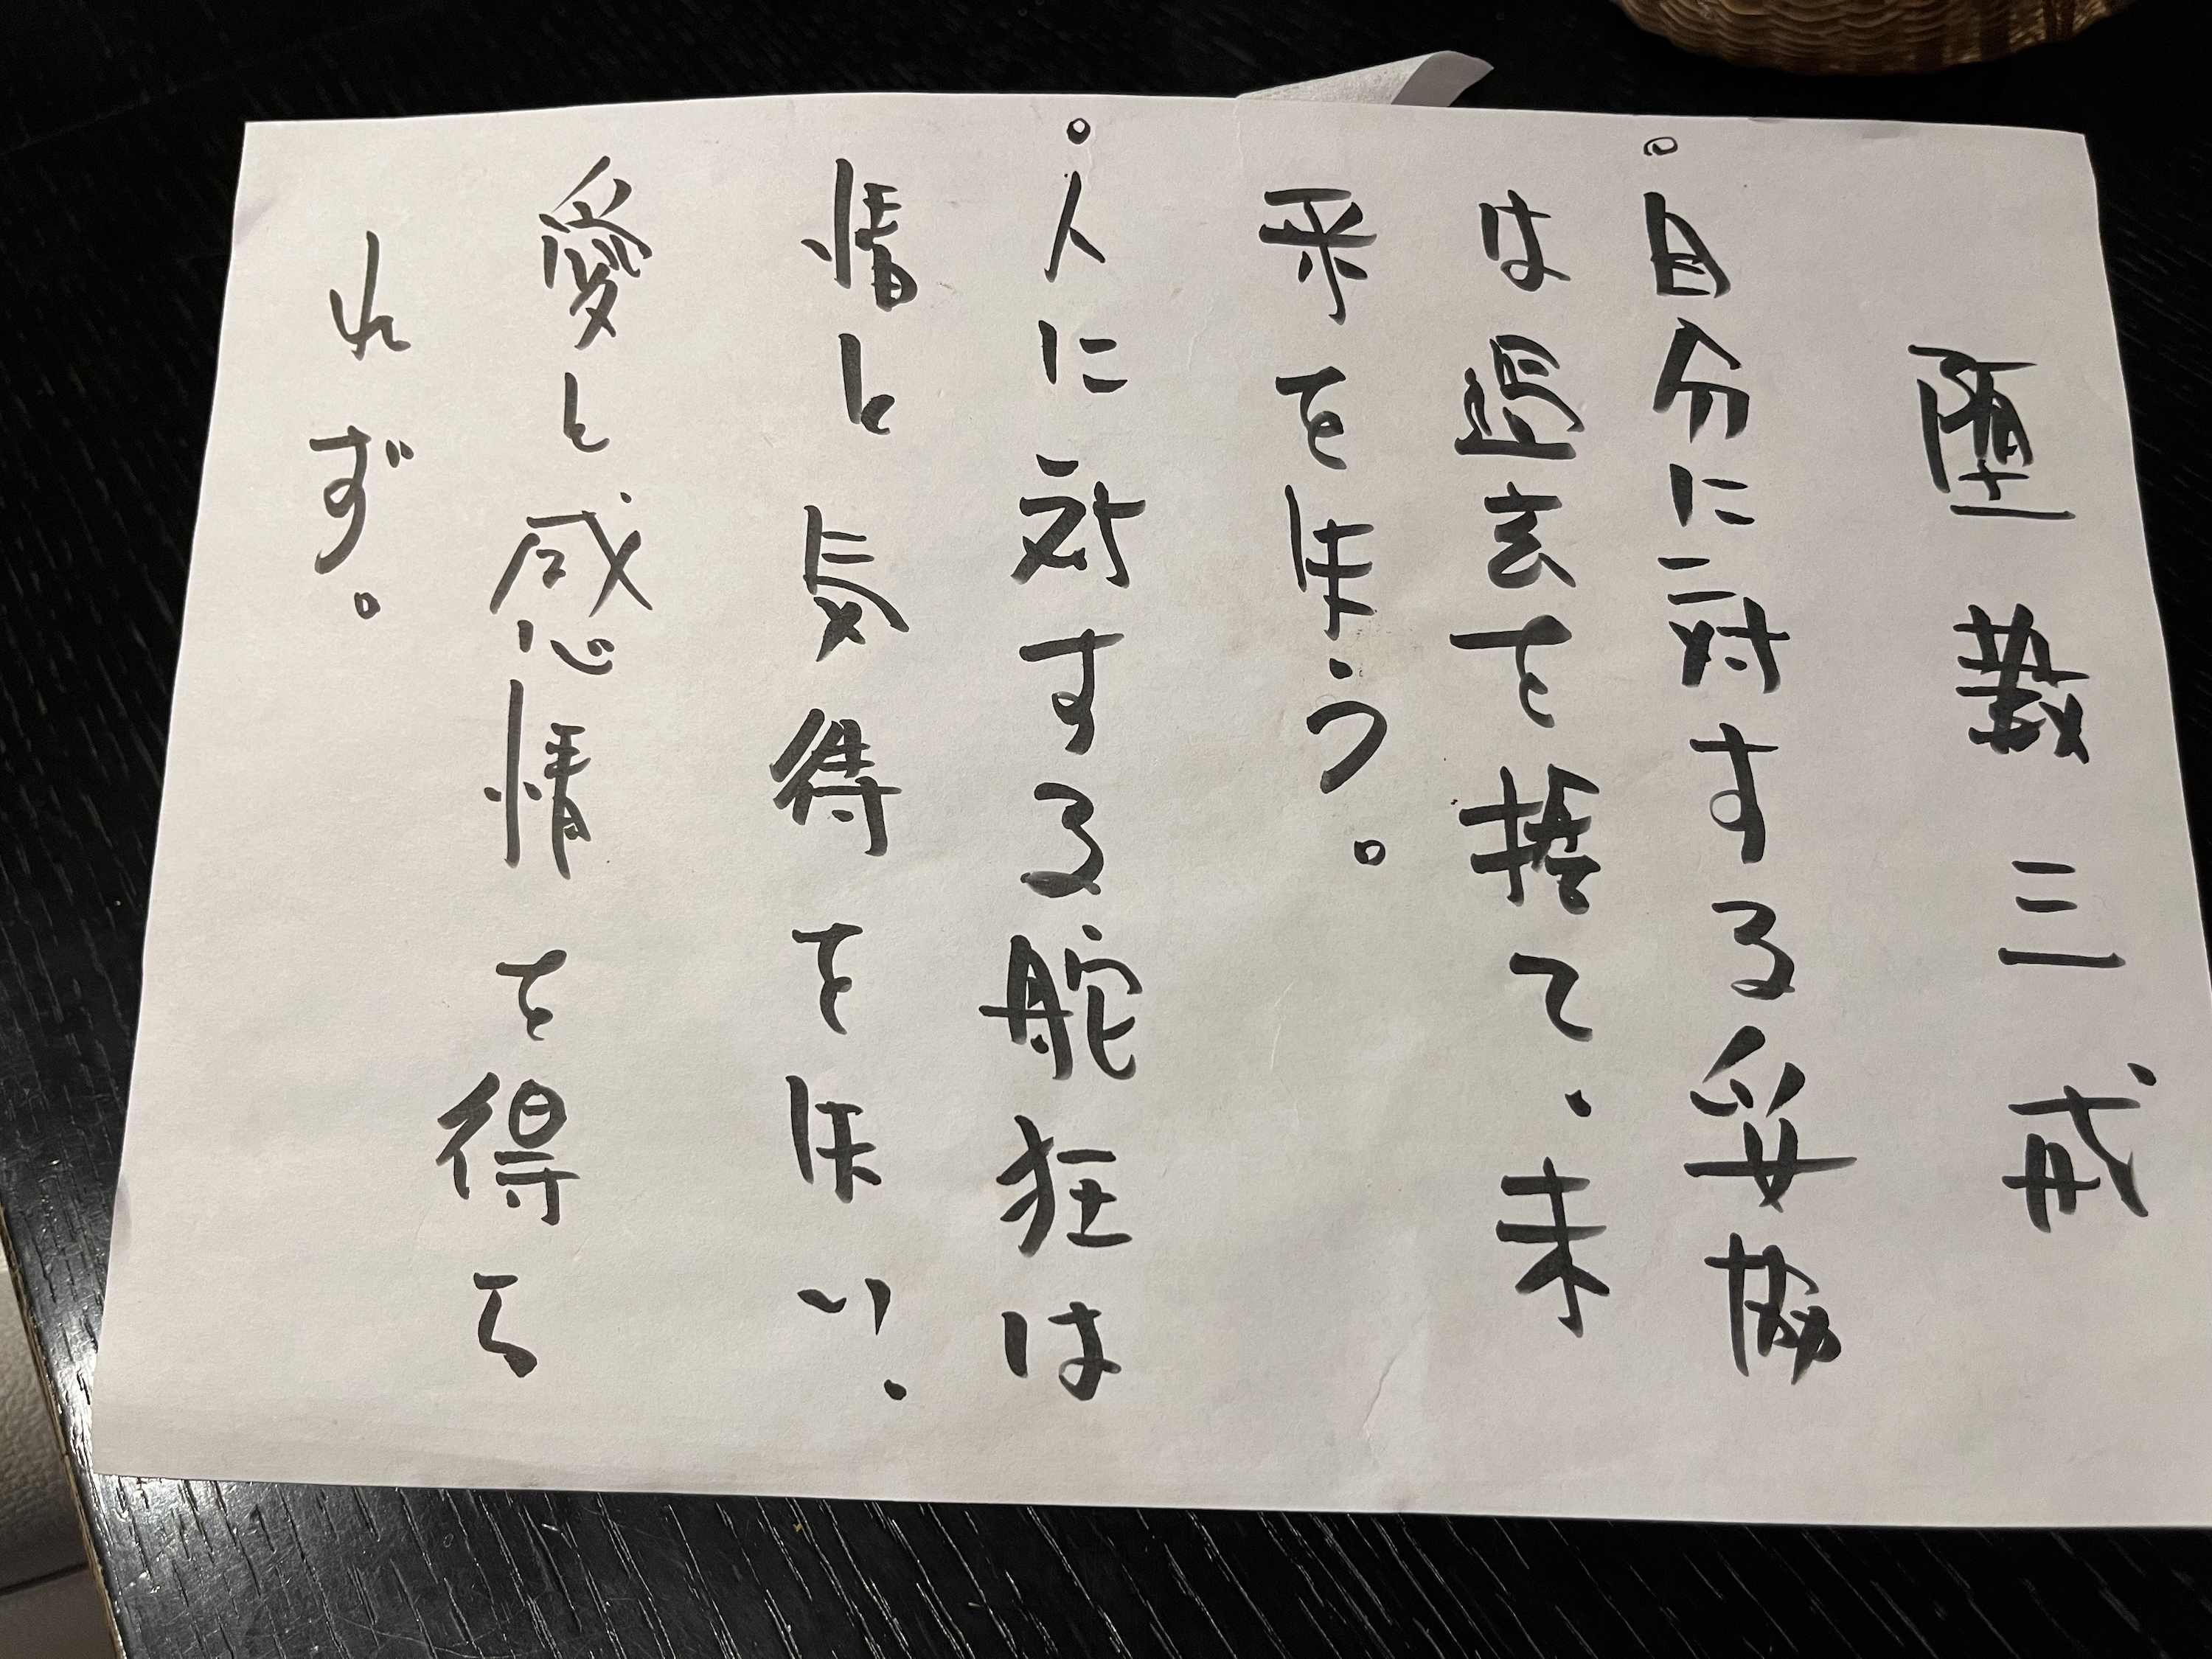 堕三戒
。自分に対する妥協
は過去を捨て、未
来を失う。
。人に対する舵狂は
情と気待を失い、
愛と感情を得ら
れず。